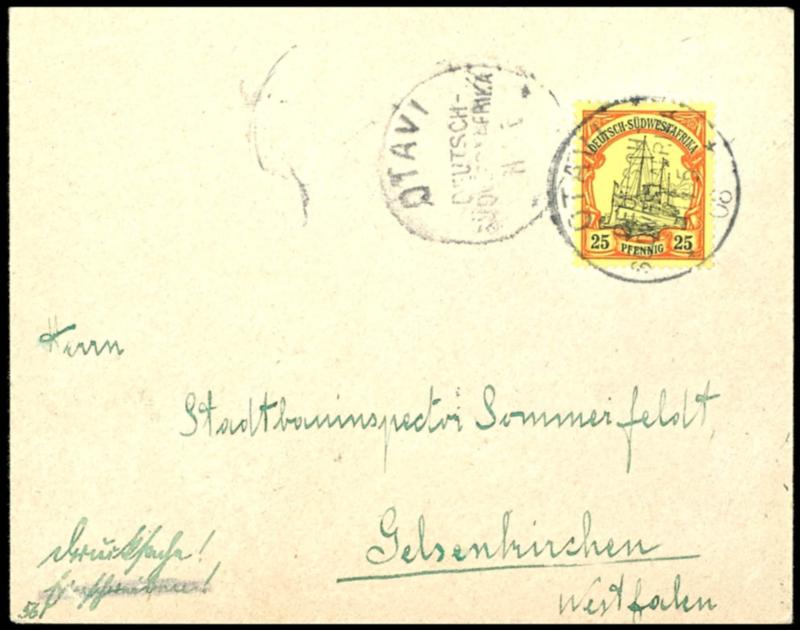 OTAVI
DEUTSCH-
SÜDWESTAFRIKA
DEUTSCH-SÜDWESTAFRIKA
25 PFENNIG 25
OTAVI
08
Herrn
Stadtbauinspector Sommerfeldt,
Gelsenkirchen
Westfalen
Drucksache!
Einschreiben!
56